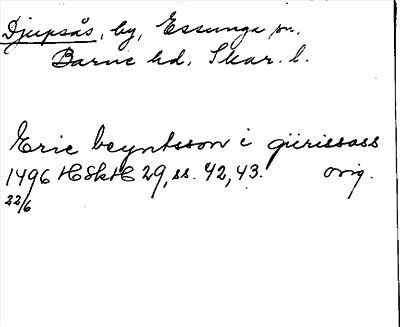 Djupsås, by, Essunga sn.
Barne hd, Skar. l.
Eric beyntsson i giirissass
1496 HSkH 29, ss. 42, 43. orig.
22/6